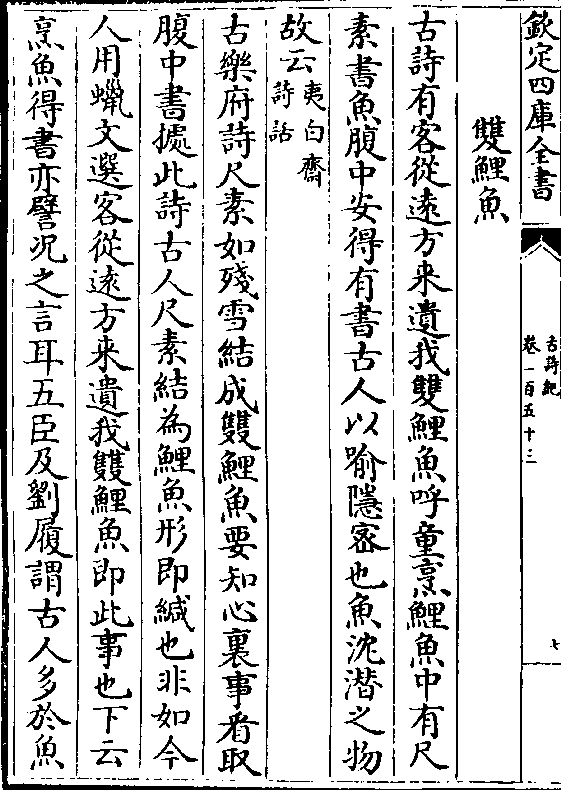 欽定四庫全書
古詩紀
卷一百五十三
七
雙鯉魚
古詩有客從逺方来遺我雙鯉魚呼童烹鯉魚中有尺
素書魚腹中安得有書古人以喻隱宻也魚沈潜之物
故云夷白齋詩話
古樂府詩尺素如殘雪結成雙鯉魚要知心裏事看取
腹中書據此詩古人尺素結為鯉魚形即緘也非如今
人用蠟文選客從逺方来遺我雙鯉魚即此事也下云
烹魚得書亦譬况之言耳五臣及劉履謂古人多於魚